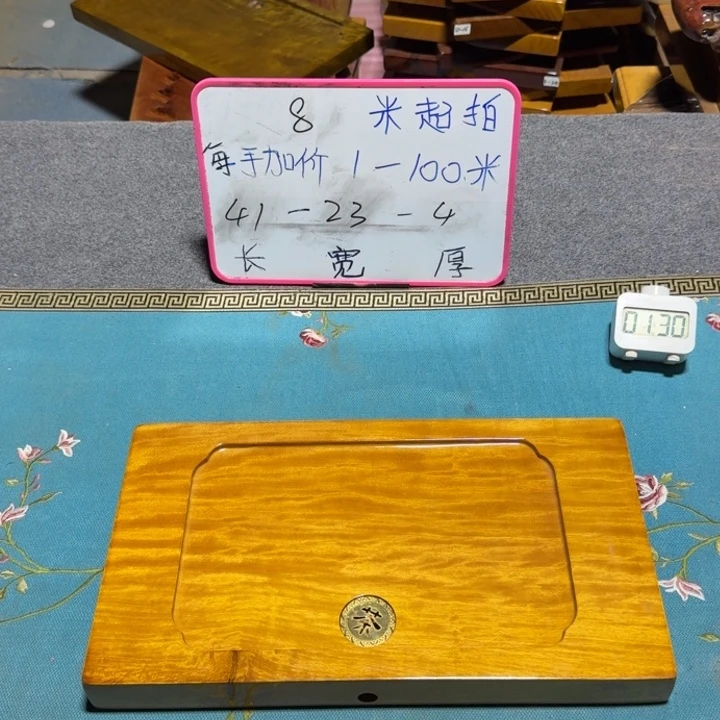 8 米起拍
每手加价 1－100米
41－23－4
长 宽 厚
01:30
茶